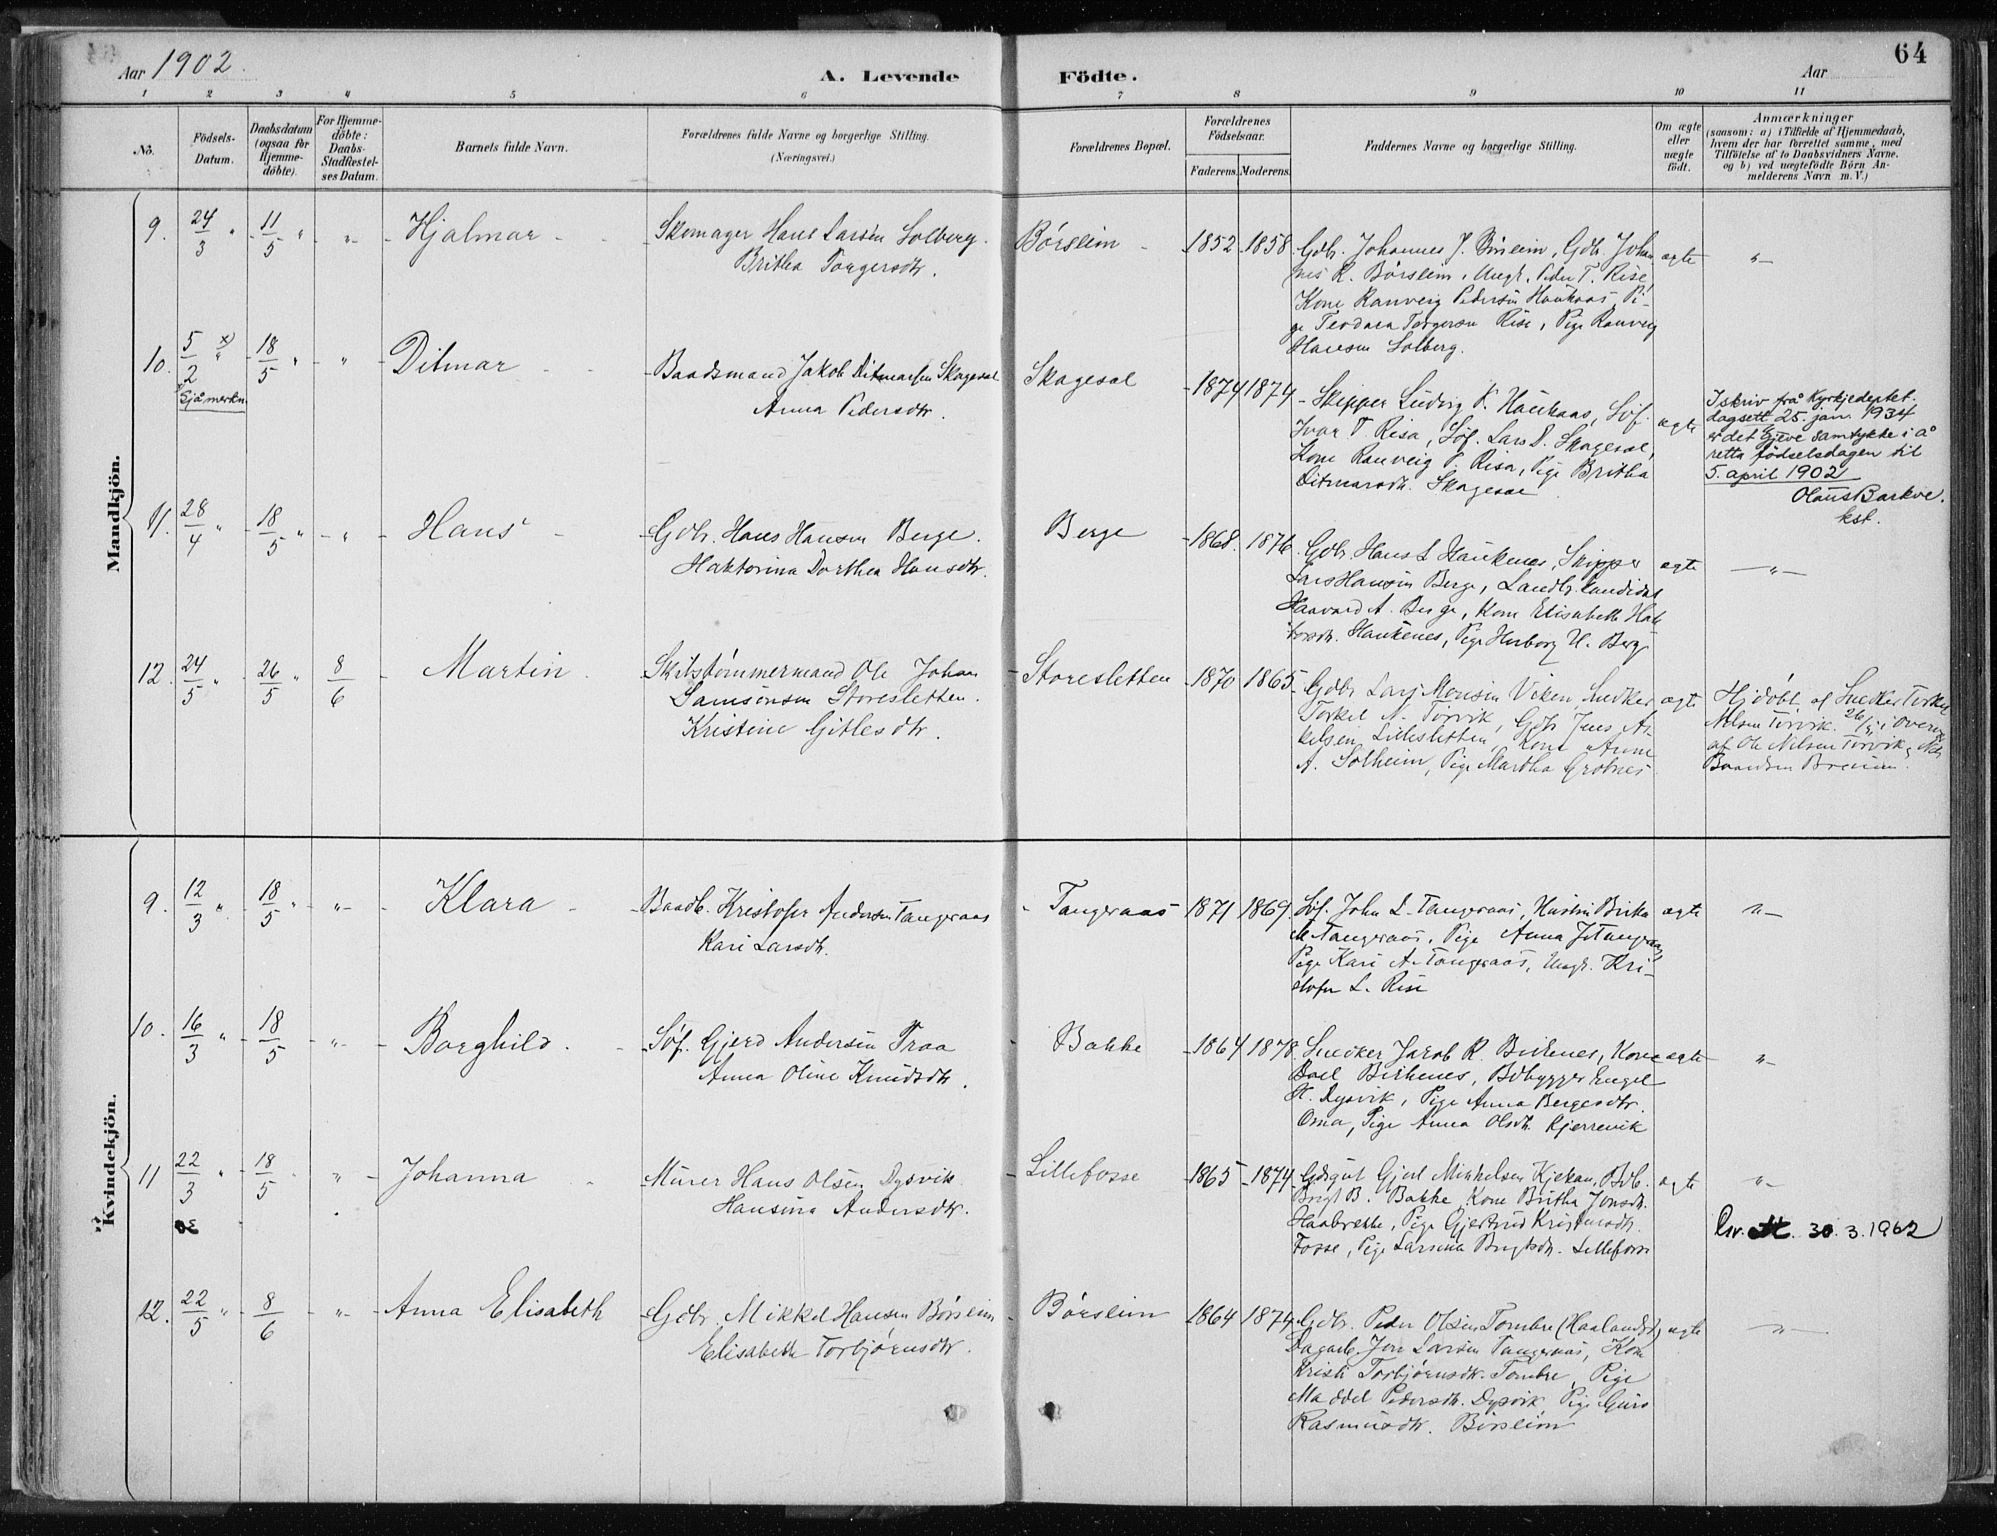 Aar 1902.
A. Levende
Födte.
Aar
64
1 2 3 4 5 6 7 8 9 10 11
No.
Födsels-
Datum.
Daabsdatum
(ogsaa for
Hjemme-
döbte).
For Hjemme-
döbte:
Daabs-
Stadfæstel-
ses Datum.
Barnets fulde Navn.
Forældrenes fulde Navne og borgerlige Stilling.
(Næringsvei.)
Forældrenes Bopæl.
Forældrenes
Födselsaar.
Faderens. Moderens.
Faddernes Navne og borgerlige Stilling.
Om ægte
eller
uægte
födt.
Anmærkninger
(saasom: a) i Tilfælde af Hjemmedaab,
hvem der har forrettet samme, med
Tilföielse af to Daabsvidners Navne.
og b) ved uægtefödte Börn An-
melderens Navn m. V.)
Mandkjön.
9. 24/3 " 11/5 " " Hjalmar
Skomager Hans Larsen Solberg.
Britha Torgersdtr.
Børsleim 1852 1858
Gdbr. Johannes J. Børsleim, Gdbr. Johan
nes R. Børsleim, Ungk. Peder T. Rise,
Kone Ranveig Pedersen Haukaas, Pi-
ge Teodara Torgersen Rise, Pige Ranveig
Hansen Solberg.
ægte "
10. 5/2 x) " 18/5 " " Ditmar
Sjå merkn.
Baadsmand Jakob Ditmarsen Skagesal
Anna Pedersdtr.
Skagesal 1874 1874
Skipper Ludvig P. Haukaas, Søf.
Ivar T. Risa, Søf. Lars D. Skagesal,
Kone Ranveig P. Risa, Pige Britha
Ditmarsdtr. Skagesal
ægte
I skriv frå Kyrkjedeptet.
dagsett 25. jan. 1934
er det gjeve samtykke i å
retta födselsdagen til
5. april 1902
Olaus Barkve.
kst.
11. 28/4 " 18/5 " " Hans
Gdbr. Hans Hansen Berge.
Haktorina Dorthea Hansdtr.
Berge 1868. 1876
Gdbr. Hans S. Haukenes, Skipper
Lars Hansen Berge, Landbr. kandidat
Haavard A. Berge, Kone Elisabeth Hak
torsdtr. Haukenes, Pige Herborg H. Berge
ægte "
12. 24/5 " 26/5 " 8/6 Martin
Skibstømmermand Ole Johan
Samsonsen Storesletten.
Kristine Gitlesdtr.
Storesletten 1870 1865
Gdbr Lars Monsen Viken, Snedker
Torkel N. Tørvik, Gdbr Jens As-
laksen Lillesletten, Kone Anne
A. Solheim, Pige Martha Grøtnes
ægte
Hjdøbt af Snedker Torkel
Nilsen Tørvik 26/5 i Overv.
af Ole Nilsen Tørvik,
Baardsen
Kvindekjön.
9. 12/3 " 18/5 " " Klara
Baadb. Kristofer Andersen Tangeraas
Kari Larsdtr.
Tangeraas 1871 1869.
Søf. John L. Tangeraas, Hustru Birka
M. Tangeraas, Pige Anna J. Tangeraas
Pige Kari A. Tangeraas, Ungk. Kri-
stofer L. Rise
ægte "
10. 16/3 " 18/5 " Borghild.
Søf. Gjerd Andersen Traa
Anna Oline Knudsdtr.
Bakke 1864 1878
Snedker Jakob R. Birkenes, Kone
Boel Birkenes, Bdbygger Engel
H. Dysvik, Pige Anna Bergesdtr.
Oma, Pige Anna Olsdtr. Kjerrevik
ægte "
11 22/3 " 18/5 " Johanna
Murer Hans Olsen Dysvik
Hansina Andersdtr.
Lillefosse 1865 1874
Gdsgut Gjert Mikkelsen Kjekan, Bdb.
Brigt B. Bakke, Kone Britha Jonsdtr.
Haabrekke, Pige Gjertrud Kristensdtr.
Fosse, Pige Larsina Brigtsdtr. Lillefosse
ægte "
30.3.1962
12. 22/5 " 8/6 " Anna Elisabeth
Gdbr. Mikkel Hansen Børsleim
Elisabeth Torbjørnsdtr.
Børsleim 1864 1874
Gdbr. Peder Olsen Tombre (Haalandsd.)
Dagarb. Jon Larsen Tangeraas, Kone
Kristi Torbjørnsdtr. Tombre, Pige
Maddel Pedersdtr. Dysvik, Pige Guro
Rasmusdtr. Børsleim
ægte "